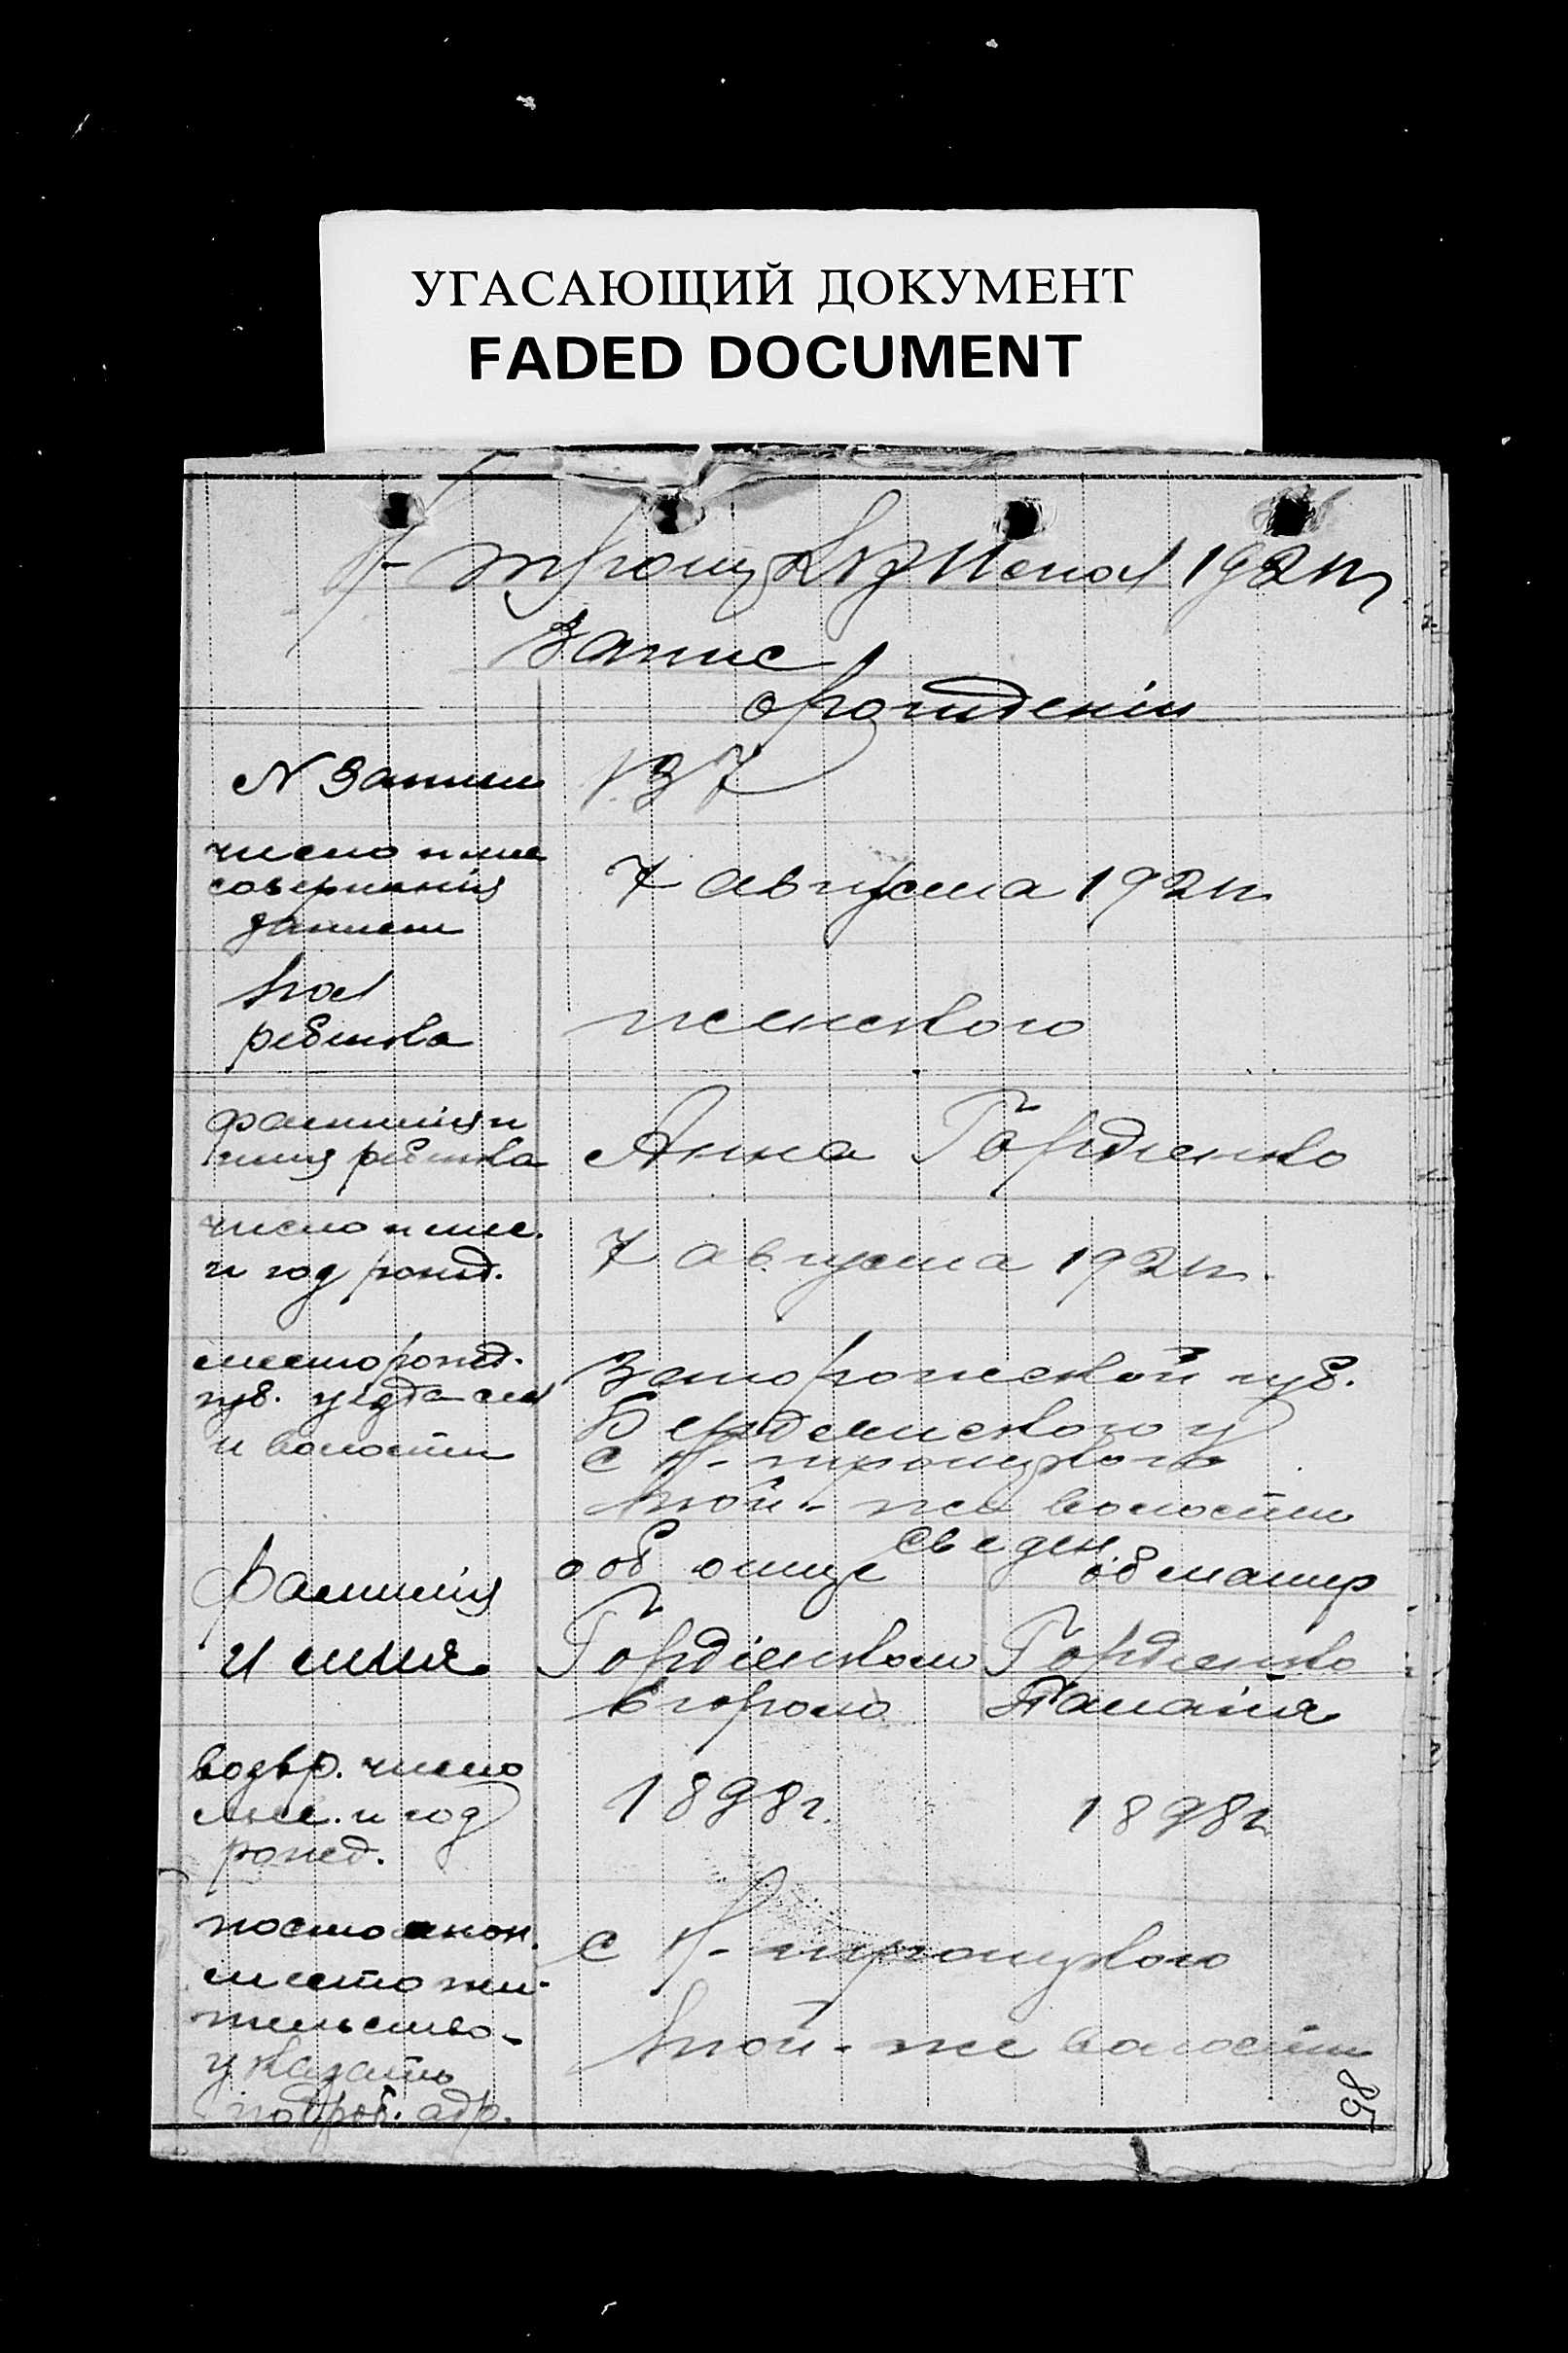 УГАСАЮЩИЙ ДОКУМЕНТ
FADED DOCUMENT
1921г
Запис
о рождении
N Записи 137
число и мес
совершения
записи
7 августа 1921г.
Пол
ребенка
женского
фамилия и
имя ребенка
Анна Гордиенко
число и мес.
и год рожд.
7 августа 1921г.
место рожд.
губ. уезда сел
и волости
Запорожской губ.
Бердянского у
с Н-троицкого
той-же волости
Сведен.
об отце
об матер
Фамилия
и имя
Гордіенко
Гордиенко
Егор
Палагія
возвр. число
мес. и год
рожд.
1898г.
1898г
постоянон.
место жи-
тельство-
указать
подроб. адр.
с Н-троицкого
той-же волости
98